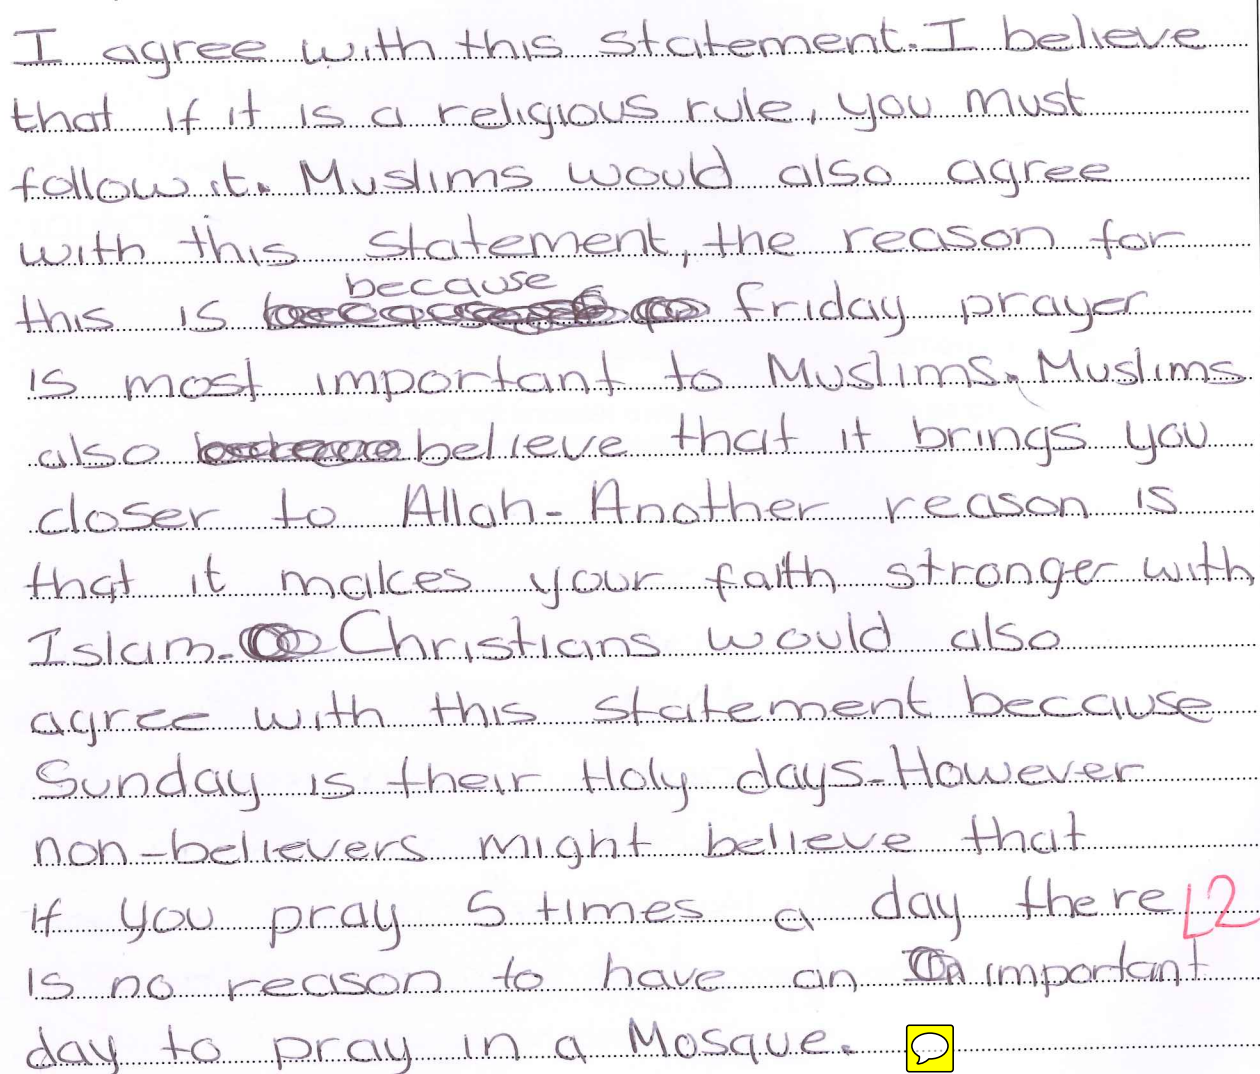 I agree with this statement. I believe
that if it is a religious rule, you must
follow it. Muslims would also agree
with this statement, the reason for
because
this is friday prayer
is most important to Muslims. Muslims
also believe that it brings you
closer to Allah. Another reason is
that it makes your faith stronger with
Islam. Christians would also
agree with this statement because
Sunday is their Holy days. However
non-believers might believe that
if you pray 5 times a day there L2
is no reason to have an important
day to pray in a Mosque.